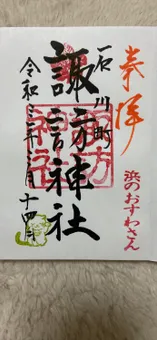 奉拝
浜のおすわさん
石川町
諏訪神社
令和三年三月十四日